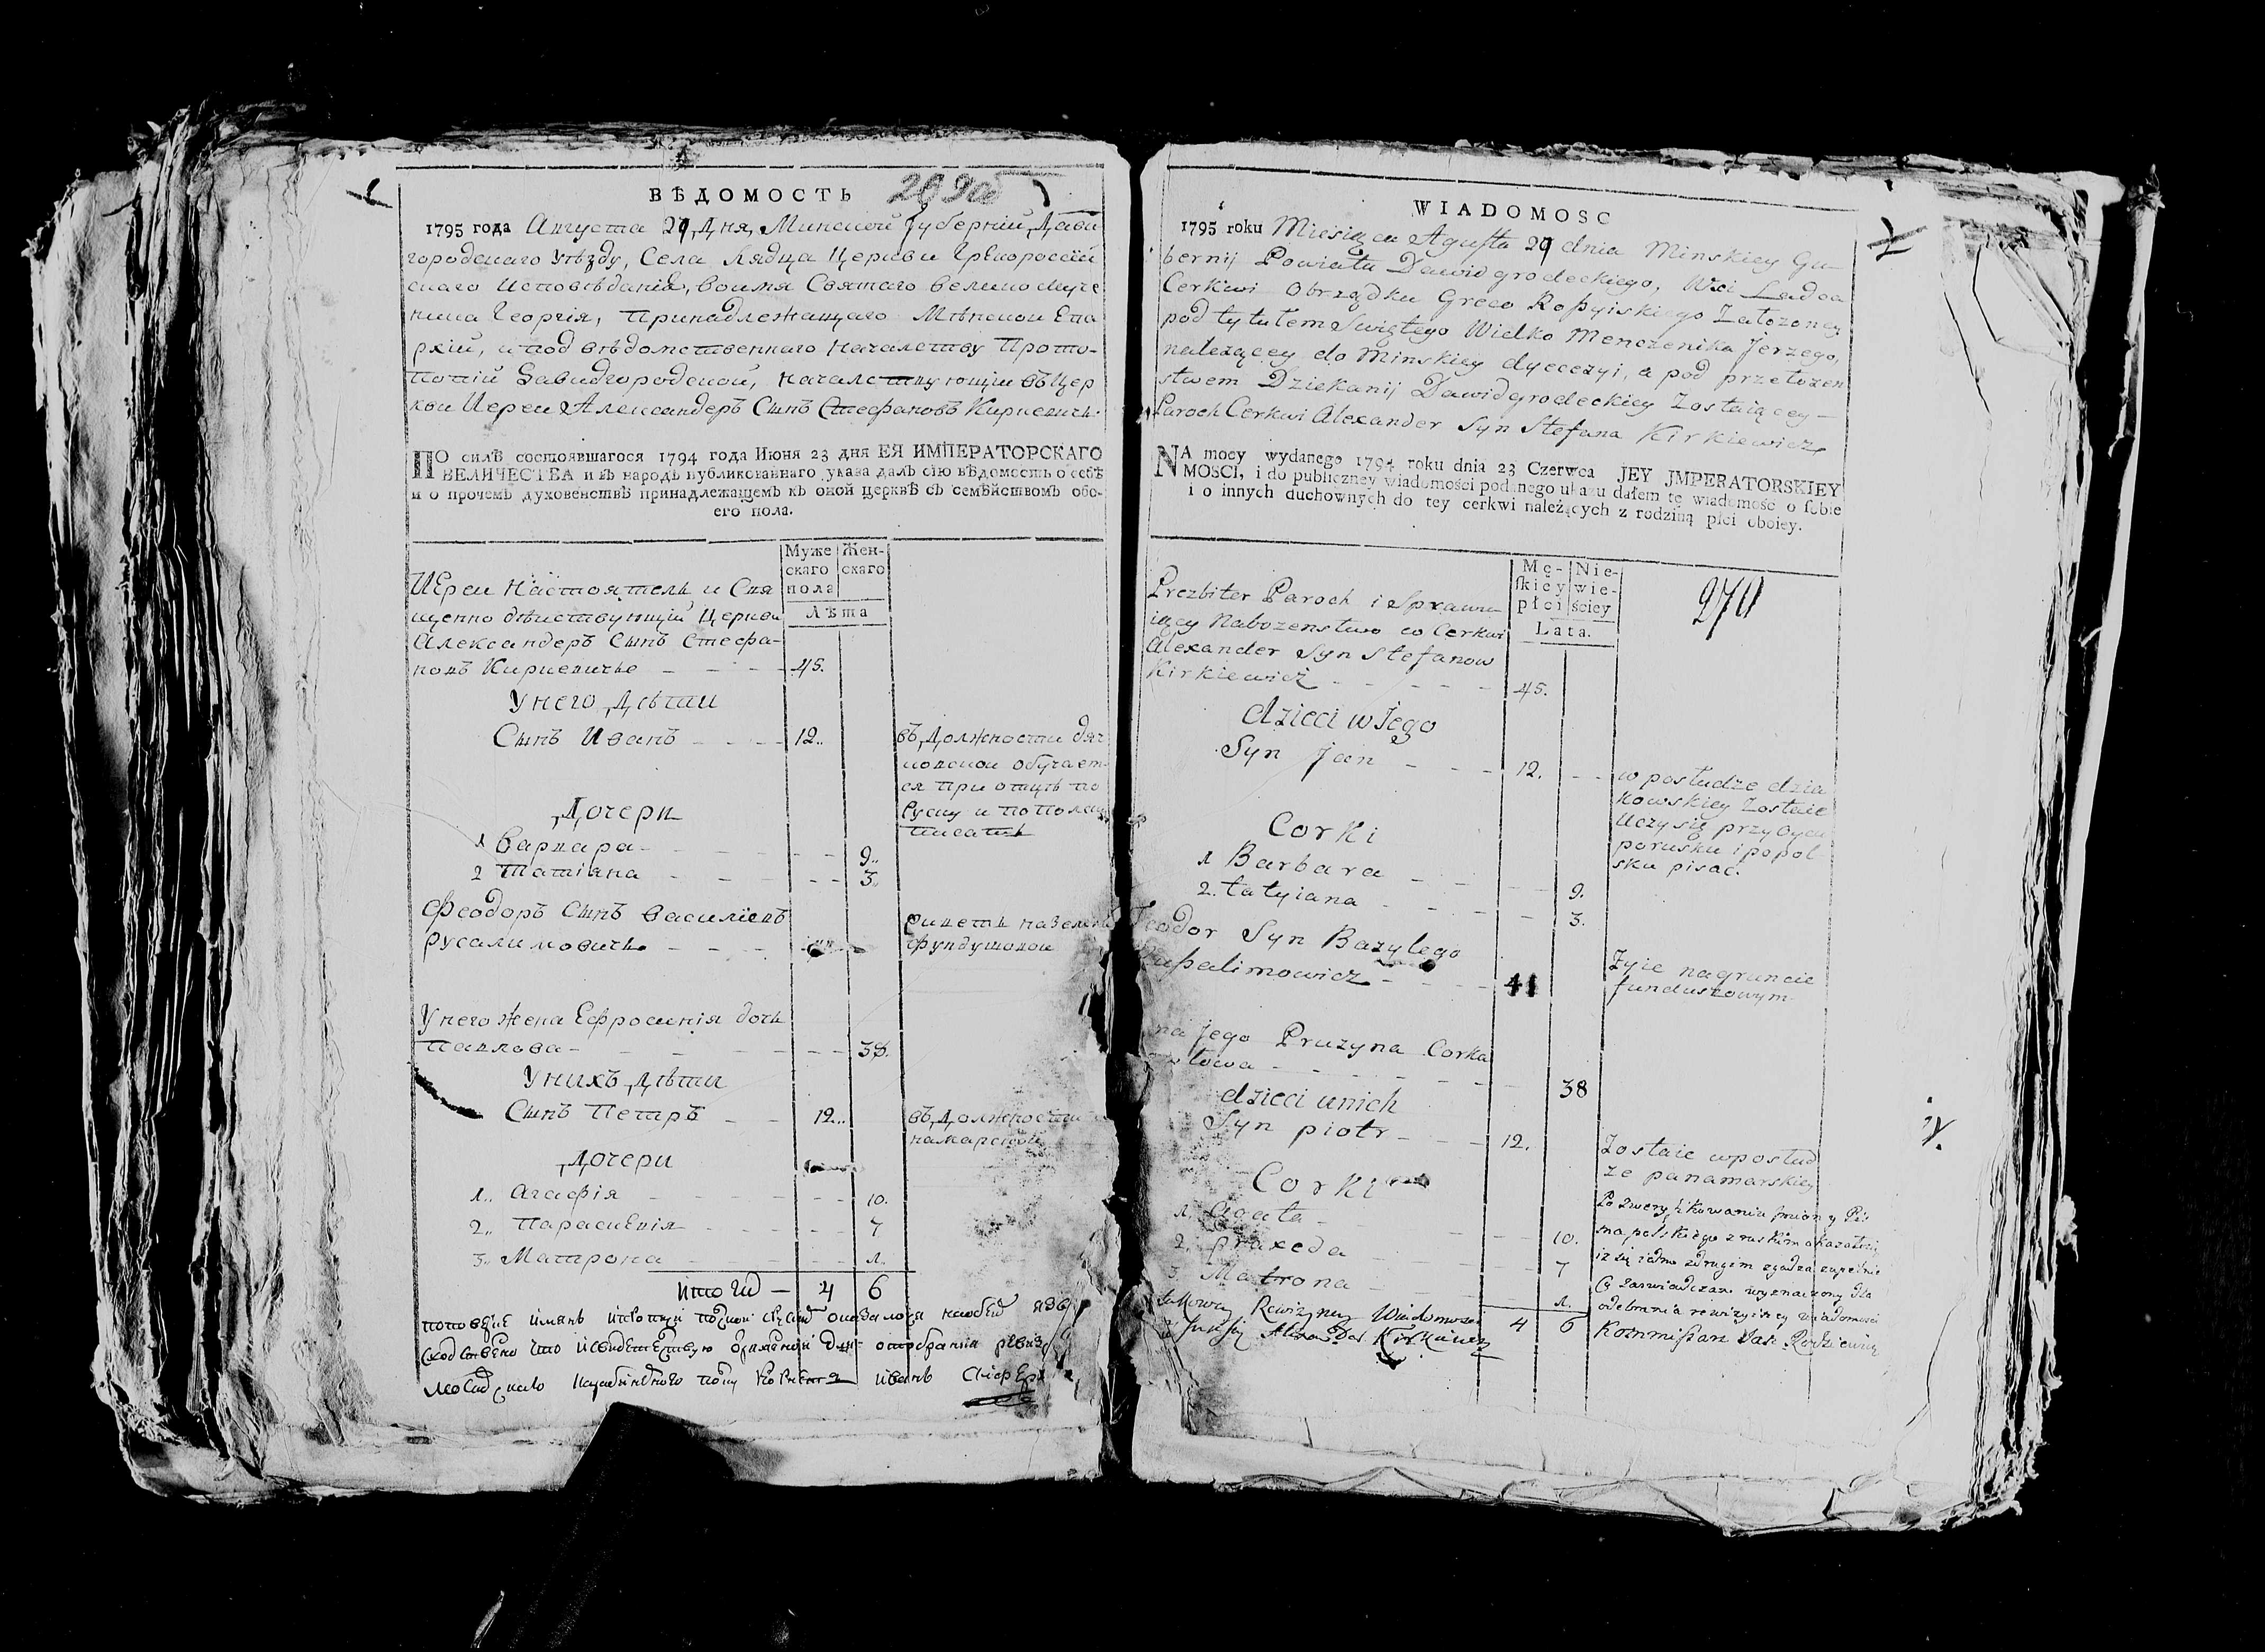 ВѢДОМОСТЬ 269об
1795 года Августа 29 Дня, Минской Губерніи, Дави
городскаго Уѣзду, Села Лядца Церкви Грекороссій
скаго Исповѣданія, воимя Святаго великомуче
ника Георгія, Принадлежащаго Мѣнской Епа
рхіи, и под вѣдомственнаго Началству Прото-
попіи Давидгородской, Началствующій въ Цер
кви Иереи Александеръ Сынъ Стефановъ Киркевичъ.
ПО силѣ состоявшагося 1794 года Июня 23 дня ЕЯ ИМПЕРАТОРСКАГО
ВЕЛИЧЕСТВА и въ народъ публикованнаго указа далъ сію вѣдомость о себѣ
и о прочемъ духовенствѣ принадлежащемъ къ оной церквѣ съ семѣйствомъ обо-
его пола.
Муже Жен-
скаго скаго
пола
Лѣта
Иереи Настоятель и Свя
щенно дѣйствующій Церкви
Александеръ Сынъ Стефа-
новъ Киркевичъ 45.
У него Дѣти
Сынъ Иванъ 12.. въ Должности дяч
ковской обучает
ся при отцѣ по
Руску и по полску
писать
Дочери
1 Варвара 9..
2 Татіяна 3..
Феодоръ Сынъ Василіевъ
Русалимовичъ
живетъ на земли
фундушовой
У него жена Ефросинія дочь
Павлова 38.
У нихъ Дѣти
Сынъ Петръ 12.. въ Должности
намарской
Дочери
1.. Агафія 10.
2.. Параскевія 7
3.. Матрона 1.
Итого 4 6
WIADOMOSC
1795 roku Miesiąca Agusta 29 dnia Minskiey Gu
bernij Powiatu Dawidgrodeckiego, Wsi Ladca
Cerkwi Obrządku Greco Rossyiskiego Założoney
pod tytułem Swiętego Wielko Menczenika Jerzego,
należącey do Minskiey dyecezyi, a pod przełożen
stwem Dziekanij Dawidgrodeckiey Zostaiącey
Paroch Cerkwi Alexander Syn Stefana Kirkiewicz
NA mocy wydanego 1794 roku dnia 23 Czerwca JEY JMPERATORSKIEY
MOSCI, i do publiczney wiadomości podanego ukazu dałem tę wiadomość o sobie
i o innych duchownych do tey cerkwi należących z rodziną płci oboiey.
Mę- Nie-
skiey wie-
płci ściey
Lata.
270
Prezbiter Paroch i Sprawu
iący Nabozenstwo w Cerkwi
Alexander Syn Stefanow
Kirkiewicz 45.
dzieci w Jego
Syn Jan 12. w posłudze dzia
kowskiey Zostaie
Uczy się przy Oycu
porusku i popol
sku pisac.
Corki
1 Barbara 9.
2. tatyiana 3.
Teodor Syn Bazylego
Rusalimowicz 41 Zyie na gruncie
funduszowym
na Jego Pruzyna Corka
włowa 38
dzieci u nich
Syn piotr 12. Zostaie w posłud
ze panamarskiey
Corki
1. Agata 10.
2. praxeda 7
3. Matrona 1.
4 6
Po Zweryfikowaniu
iz się iedno z drugim zgadza zupełnie
Co zaswiadczam wyznaczony dla
odebrania rewizyiney wiadomosci
takową Rewizyiną Wiadomosc
Alexander Kirkiewicz